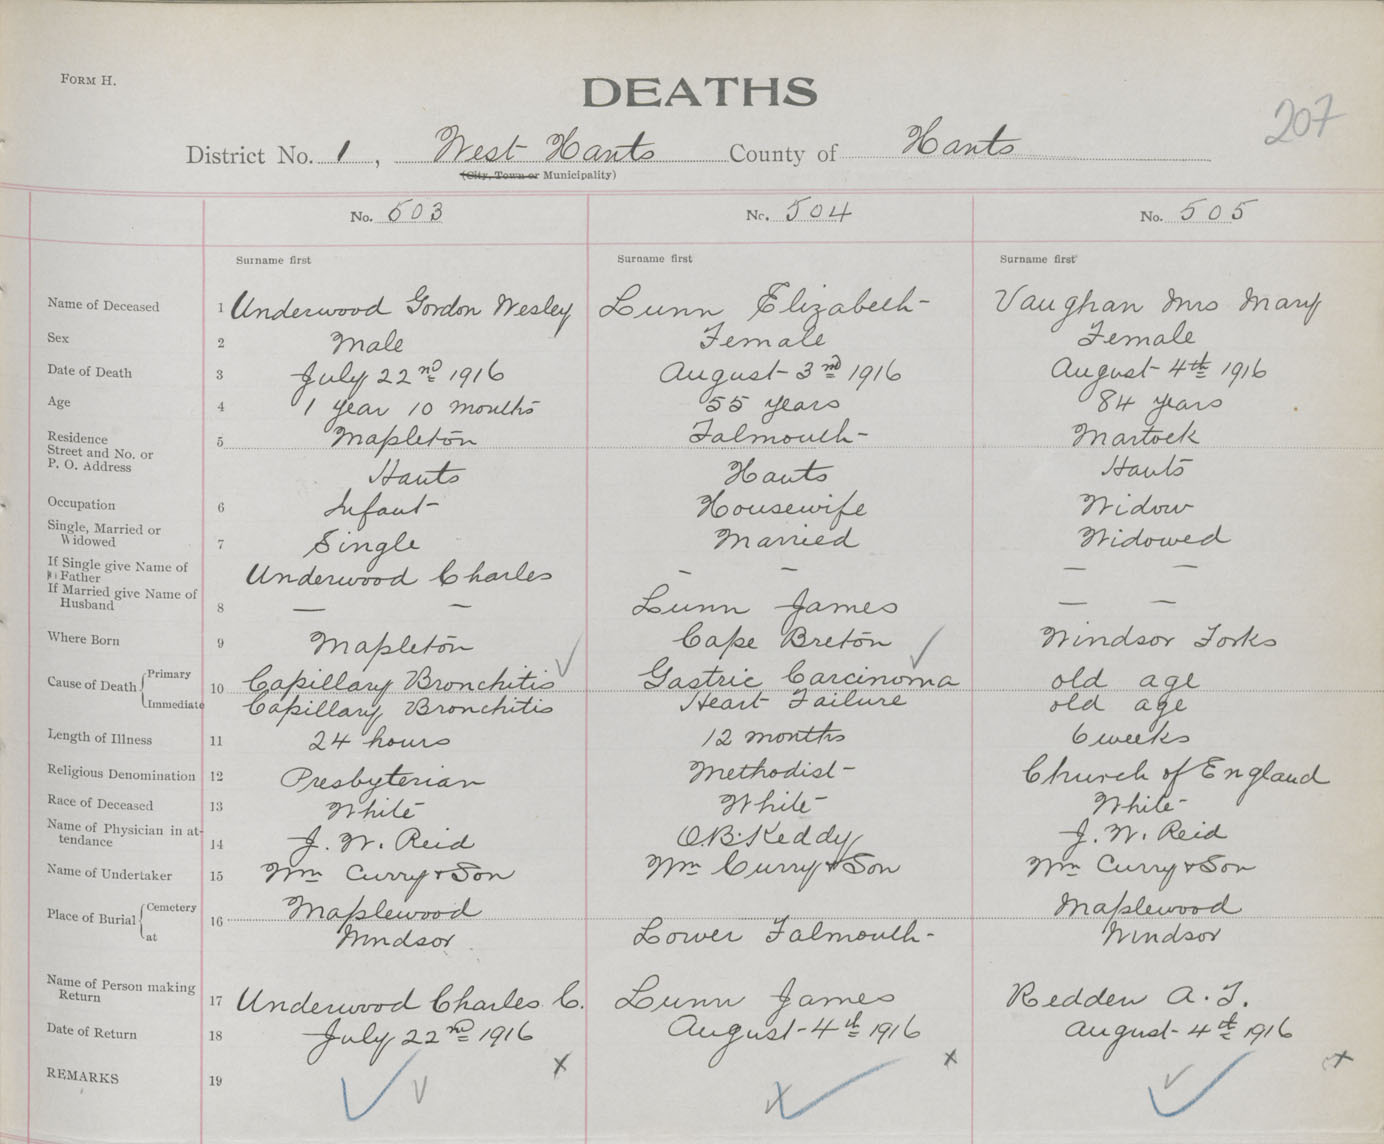 FORM H.
DEATHS
207
District No. 1, West Hants County of Hants
(City, Town or Municipality)
No. 503 No. 504 No. 505
Surname first Surname first Surname first
Name of Deceased 1 Underwood Gordon Wesley Lunn Elizabeth Vaughan Mrs Mary
Sex 2 Male Female Female
Date of Death 3 July 22nd 1916 August 3rd 1916 August 4th 1916
Age 4 1 year 10 months 55 years 84 years
Residence 5 Mapleton Falmouth Martock
Street and No. or
P. O. Address Hants Hants Hants
Occupation 6 Infant Housewife Widow
Single, Married or
Widowed 7 Single Married Widowed
If Single give Name of
Father Underwood Charles - - — —
If Married give Name of
Husband 8 — — Lunn James — —
Where Born 9 Mapleton Cape Breton Windsor Forks
Cause of Death Primary 10 Capillary Bronchitis Gastric Carcinoma old age
Immediate Capillary Bronchitis Heart Failure old age
Length of Illness 11 24 hours 12 months 6 weeks
Religious Denomination 12 Presbyterian Methodist Church of England
Race of Deceased 13 White White White
Name of Physician in at-
tendance 14 J. W. Reid O.B. Keddy J. W. Reid
Name of Undertaker 15 Wm Curry & Son Wm Curry & Son Wm Curry & Son
Place of Burial Cemetery 16 Maplewood Maplewood
at Windsor Lower Falmouth Windsor
Name of Person making
Return 17 Underwood Charles C. Lunn James Redden A. T.
Date of Return 18 July 22nd 1916 August 4th 1916 August 4th 1916
REMARKS 19 x x x